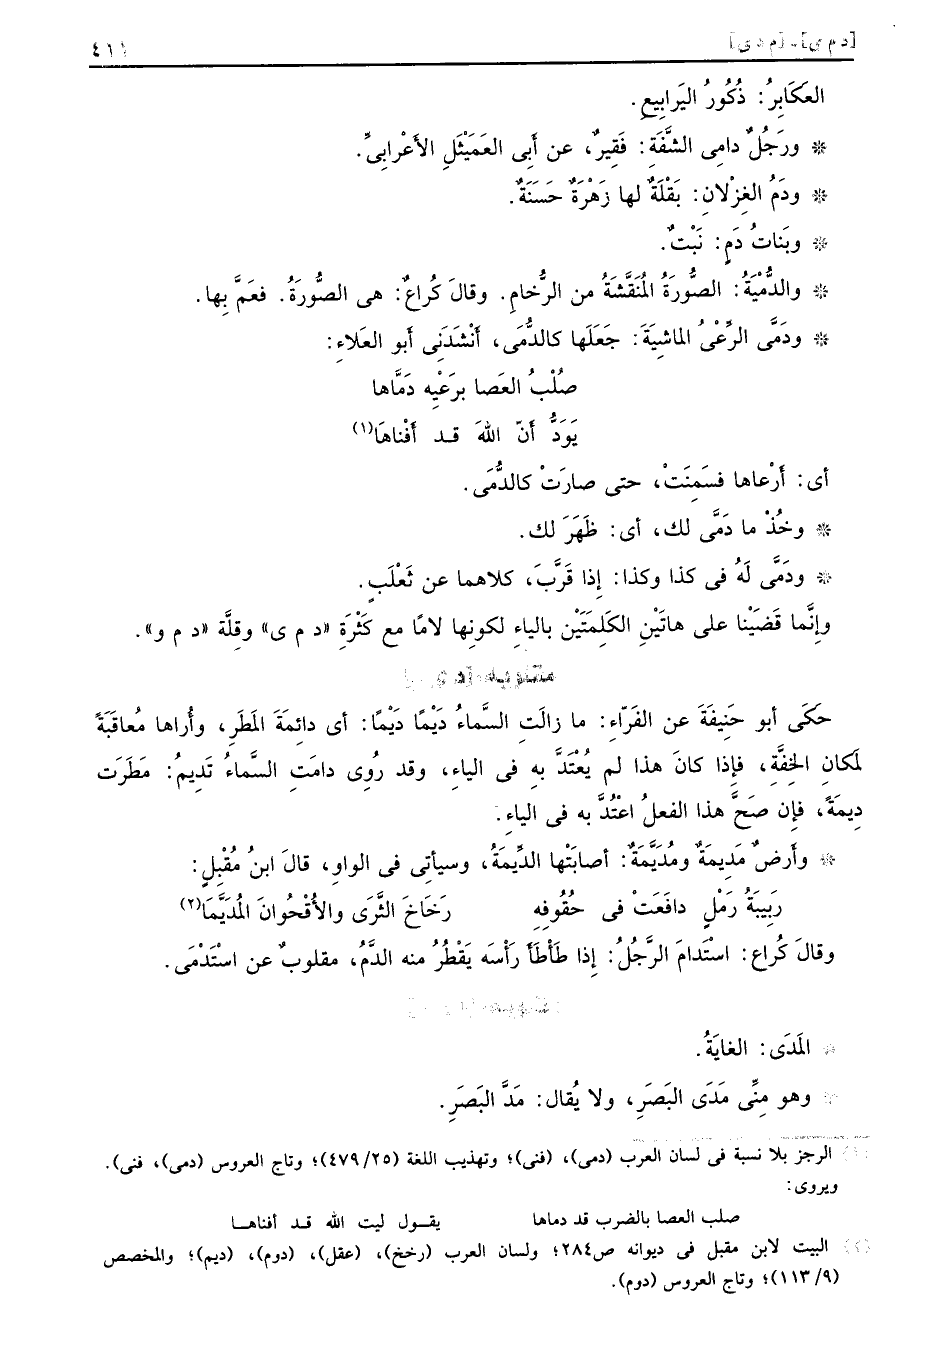 [د م ى]ـ[م د ى] ٤١١
العَكَابِرُ: ذُكُورُ اليَرابِيعِ.
* ورَجُلٌ دامِى الشَّفَةِ: فَقِيرٌ، عن أَبِى العَمَيْثَلِ الأَعْرابِىِّ.
* ودَمُ الغِزْلانِ: بَقْلَةٌ لها زَهْرَةٌ حَسَنَةٌ.
* وبَناتُ دَمٍ: نَبْتٌ.
* والدُّمْيَةُ: الصُّورَةُ المُنَقَّشَةُ من الرُّخامِ. وقالَ كُراعٌ: هى الصُّورَةُ. فعَمَّ بِها.
* ودَمَّى الرِّعْىُ الماشِيَةَ: جَعَلَها كالدُّمَى، أَنْشَدَنِى أبو العَلاءِ:
صُلْبُ العَصا برَعْيِه دَمَّاها
يَوَدُّ أَنّ اللهَ قـد أَفْناهَا(١)
أى: أَرْعاها فسَمِنَتْ، حتى صارَتْ كالدُّمَى.
* وخُذْ ما دَمَّى لك، أى: ظَهَرَ لك.
* ودَمَّى لَهُ فى كذا وكذا: إذا قَرَّبَ، كلاهما عن ثَعْلَبٍ.
وإنَّما قَضَيْنا على هاتَيْنِ الكَلِمَتَيْنِ بالياءِ لكونِها لامًا مع كَثْرَةِ «د م ى» وقلَّة «د م و».
مقلوبه
حكَى أبو حَنِيفَةَ عن الفَرّاءِ: ما زالَتِ السَّماءُ دَيْمًا دَيْمًا: أى دائمَةَ المَطَرِ، وأُراها مُعاقَبَةً
لمَكانِ الخِفَّةِ، فإذا كانَ هذا لم يُعْتَدَّ به فى الياءِ، وقد رُوِى دامَتِ السَّماءُ تَدِيمُ: مَطَرَت
دِيمَةً، فإن صَحَّ هذا الفعلُ اعْتُدَّ به فى الياءِ.
* وأَرضٌ مَدِيمَةٌ ومُدَيَّمَةٌ: أصابَتْها الدِّيمَةُ، وسيأتِى فى الواوِ، قالَ ابنُ مُقْبِلٍ:
رَبِيبَةُ رَمْلٍ دافَعَتْ فى حُقُوفِهِ رَخَاخَ الثَّرَى والأُقْحُوانَ المُدَيَّمَا(٢)
وقالَ كُراع: اسْتَدامَ الرَّجُلُ: إذا طَأْطَأَ رَأْسَه يَقْطُرُ منه الدَّمُ، مقلوبٌ عن اسْتَدْمَى.
* المَدَى: الغايَةُ.
* وهو مِنِّى مَدَى البَصَرِ، ولا يُقال: مَدَّ البَصَرِ.
(١) الرجز بلا نسبة فى لسان العرب (دمى)، (فنى)؛ وتهذيب اللغة (٤٧٩/٢٥)؛ وتاج العروس (دمى)، فنى).
ويروى:
صلب العصا بالضرب قد دماها يقـول ليت الله قـد أفناهـا
(٢) البيت لابن مقبل فى ديوانه ص٢٨٤؛ ولسان العرب (رخخ)، (عقل)، (دوم)، (ديم)؛ والمخصص
(١١٣/٩)؛ وتاج العروس (دوم).